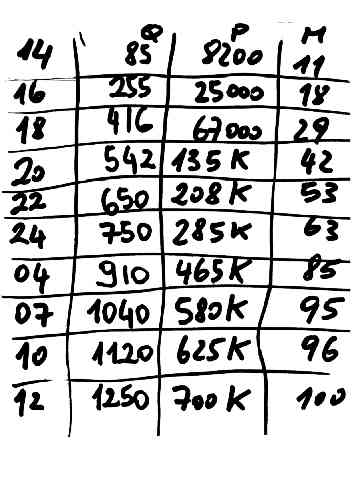 Q P M
14 85 8200 11
16 255 25000 18
18 416 67000 29
20 542 135K 42
22 650 208K 53
24 750 285K 63
04 910 465K 85
07 1040 580K 95
10 1120 625K 96
12 1250 700K 100